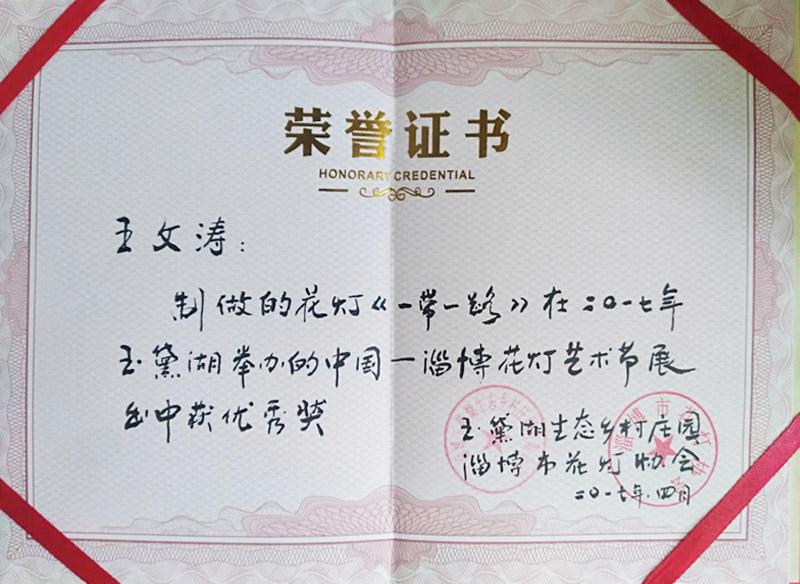 荣誉证书
HONORARY CREDENTIAL
王文涛：
制做的花灯《一带一路》在二〇一七年
玉黛湖举办的中国一淄博花灯艺术节展
出中获优秀奖
玉黛湖生态乡村庄园
淄博市花灯协会
二〇一七年.四月